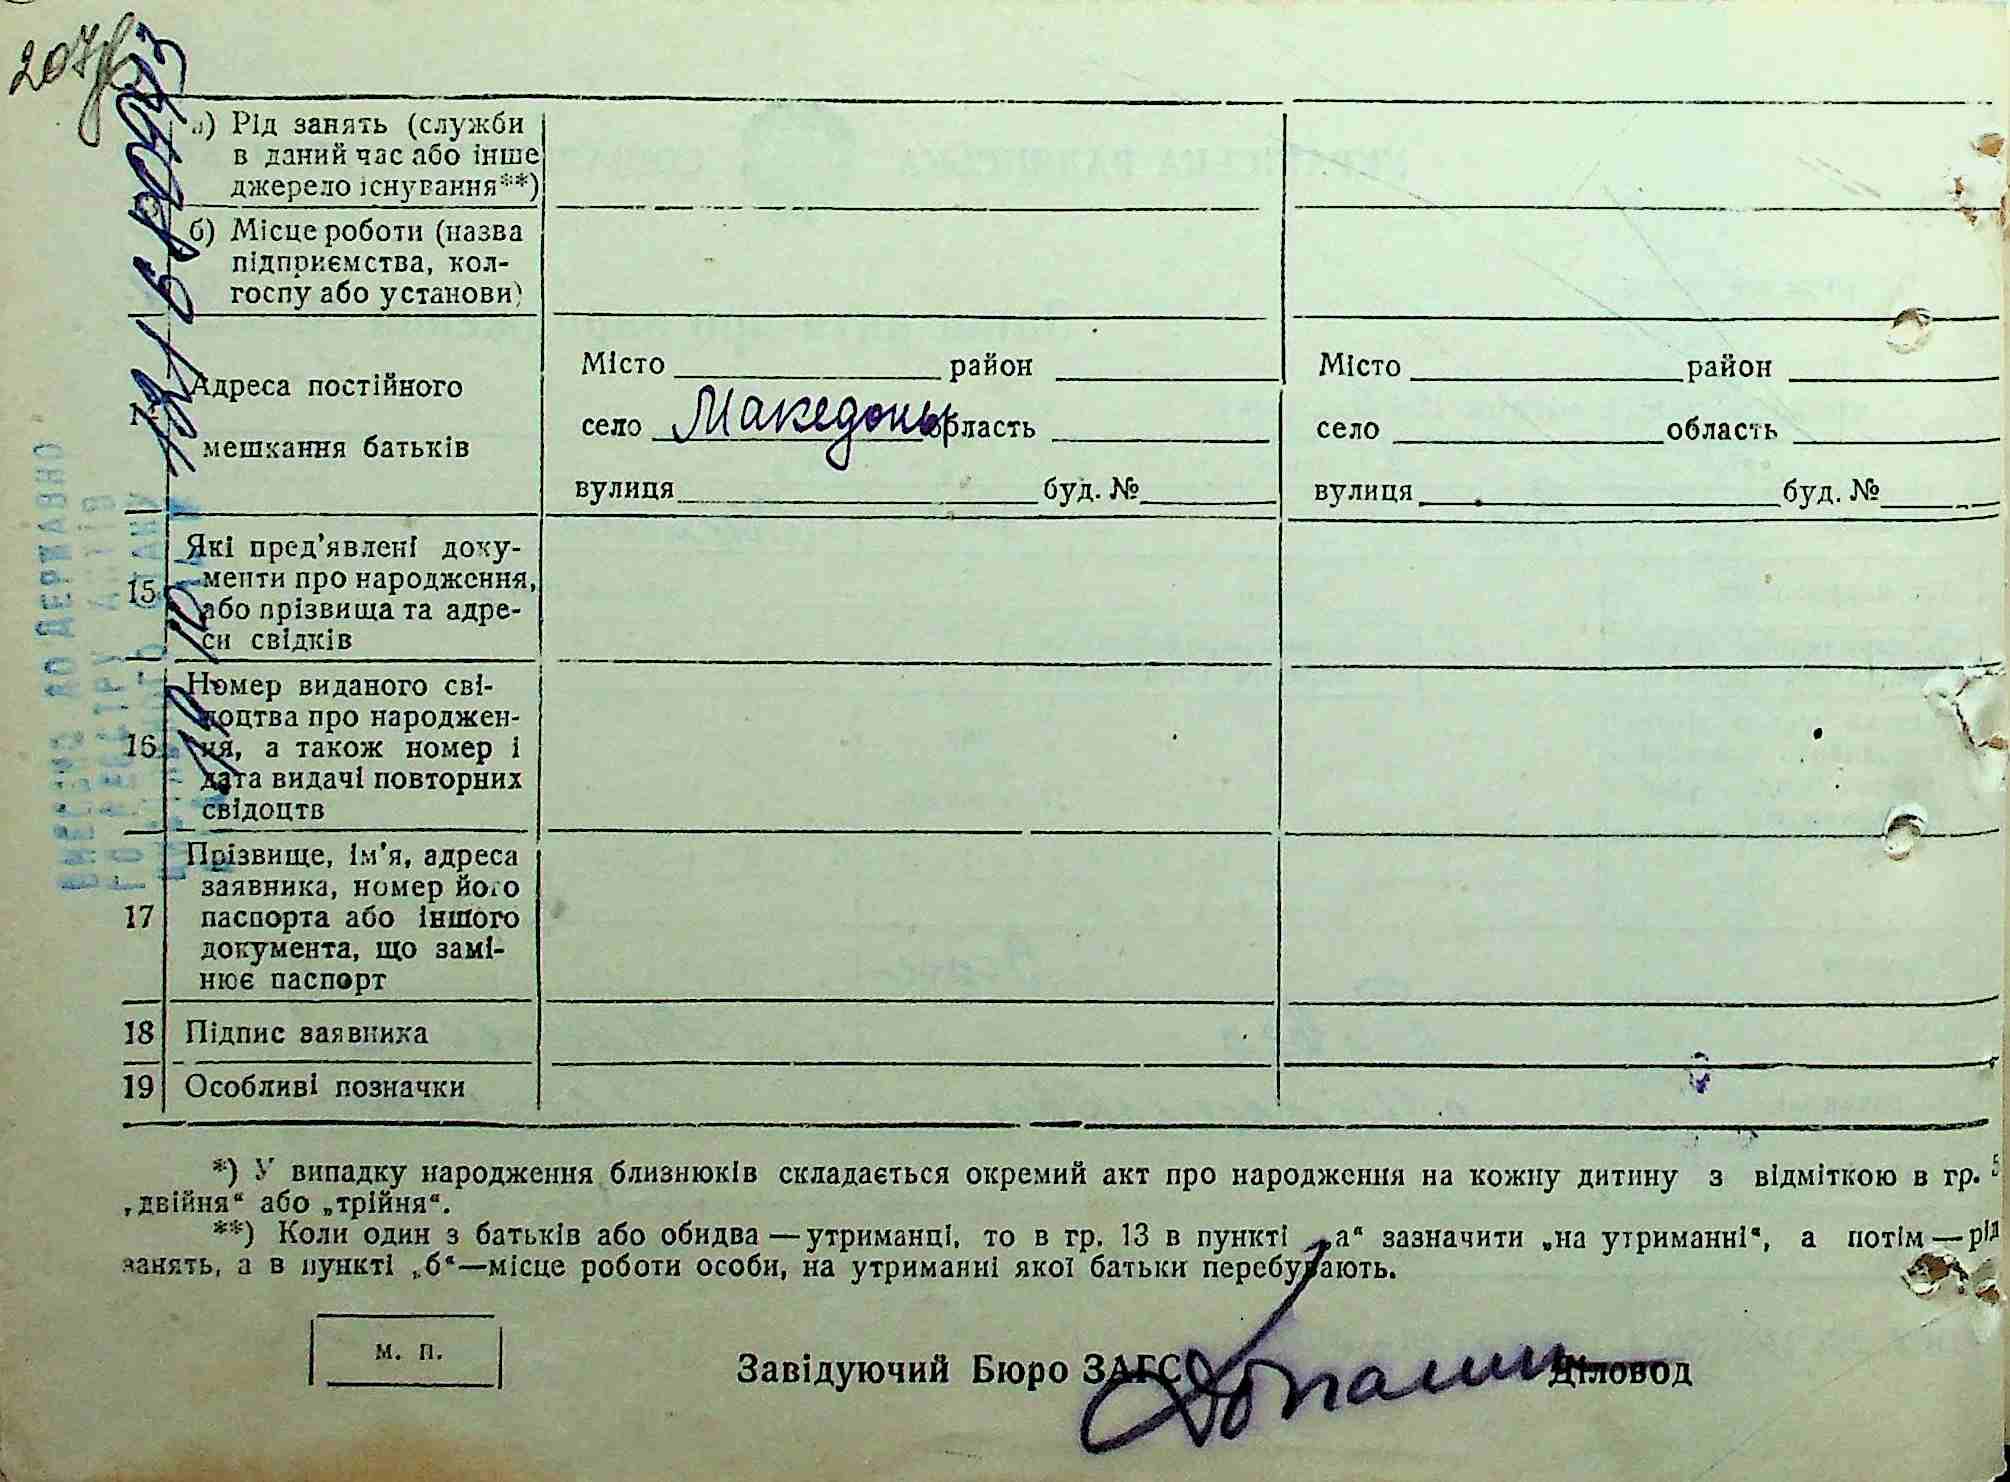 207
а) Рід занять (служби
в даний час або інше
джерело існування**)
б) Місце роботи (назва
підприємства, кол-
госпу або установи)
Адреса постійного
мешкання батьків
Місто район
село Македони область
вулиця буд. №
Місто район
село область
вулиця буд. №
15 Які пред'явлені доку-
менти про народження,
або прізвища та адре-
си свідків
16 Номер виданого сві-
доцтва про народжен-
ня, а також номер і
дата видачі повторних
свідоцтв
17 Прізвище, ім'я, адреса
заявника, номер його
паспорта або іншого
документа, що замі-
нює паспорт
18 Підпис заявника
19 Особливі позначки
*) У випадку народження близнюків складається окремий акт про народження на кожну дитину з відміткою в гр. 5
„двійня“ або „трійня“.
**) Коли один з батьків або обидва — утриманці, то в гр. 13 в пункті „а“ зазначити „на утриманні“, а потім — рід
занять, а в пункті „б“—місце роботи особи, на утриманні якої батьки перебувають.
м. п.
Завідуючий Бюро ЗАГС Діловод
ВНЕСЕНО ДО ДЕРЖАВНО
ГО РЕЄСТРУ АКТІВ